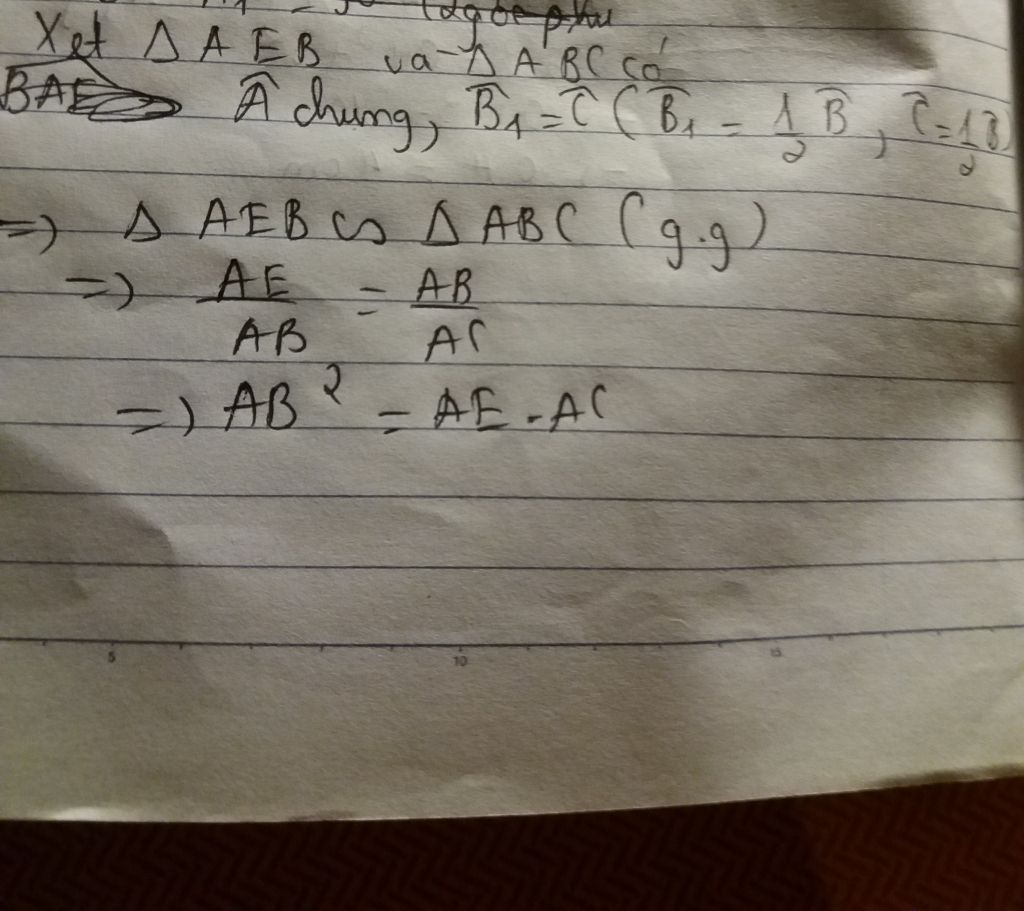 Xet Δ AEB va Δ ABC có
BAE Â chung, B̂₁ = Ĉ ( B̂₁ = 1/2 B̂, Ĉ = 1/2 B̂)
=> Δ AEB ∽ Δ ABC (g.g)
=> AE/AB = AB/AC
=> AB² = AE . AC
5 10 15